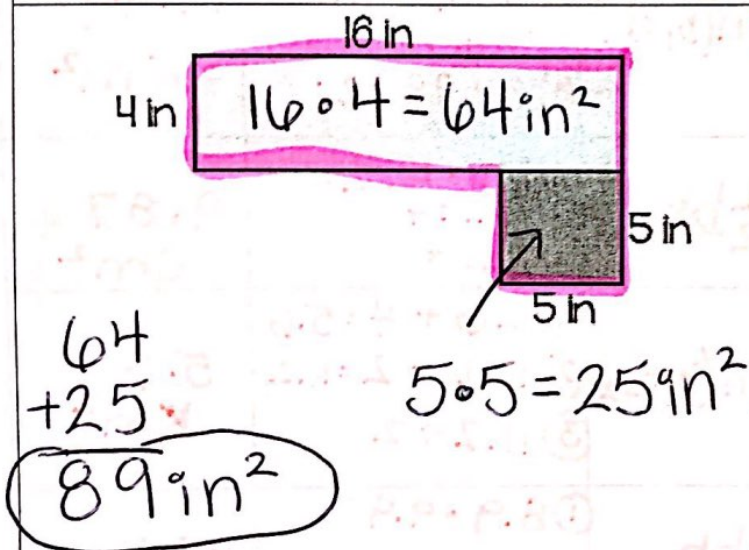 16 in
4 in
16•4=64in²
5 in
5 in
5•5=25in²
64
+25
89in²